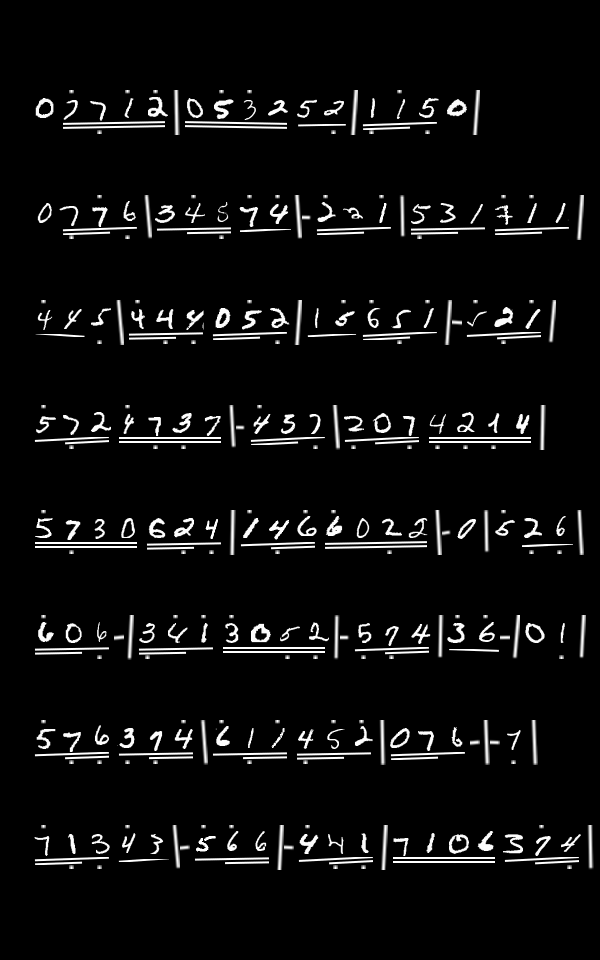 0 7 7 1 2 | 0 5 3 2 5 2 | 1 1 5 0 |
0 7 7 6 | 3 4 5 7 4 | - 2 2 1 | 5 3 1 7 1 1 |
4 4 5 | 4 4 4 0 5 2 | 1 5 6 5 1 | - 5 2 1 |
5 7 2 4 7 3 7 | - 4 5 7 | 2 0 7 4 2 1 4 |
5 7 3 0 6 2 4 | 1 4 6 6 0 2 2 | - 0 | 5 2 6 |
6 0 6 - | 3 6 1 3 0 5 2 | - 5 7 4 | 3 6 - | 0 1 |
5 7 6 3 7 4 | 6 1 1 4 5 2 | 0 7 6 - | - 7 |
7 1 3 4 3 | - 5 6 6 | - 4 4 1 | 7 1 0 6 3 7 4 |